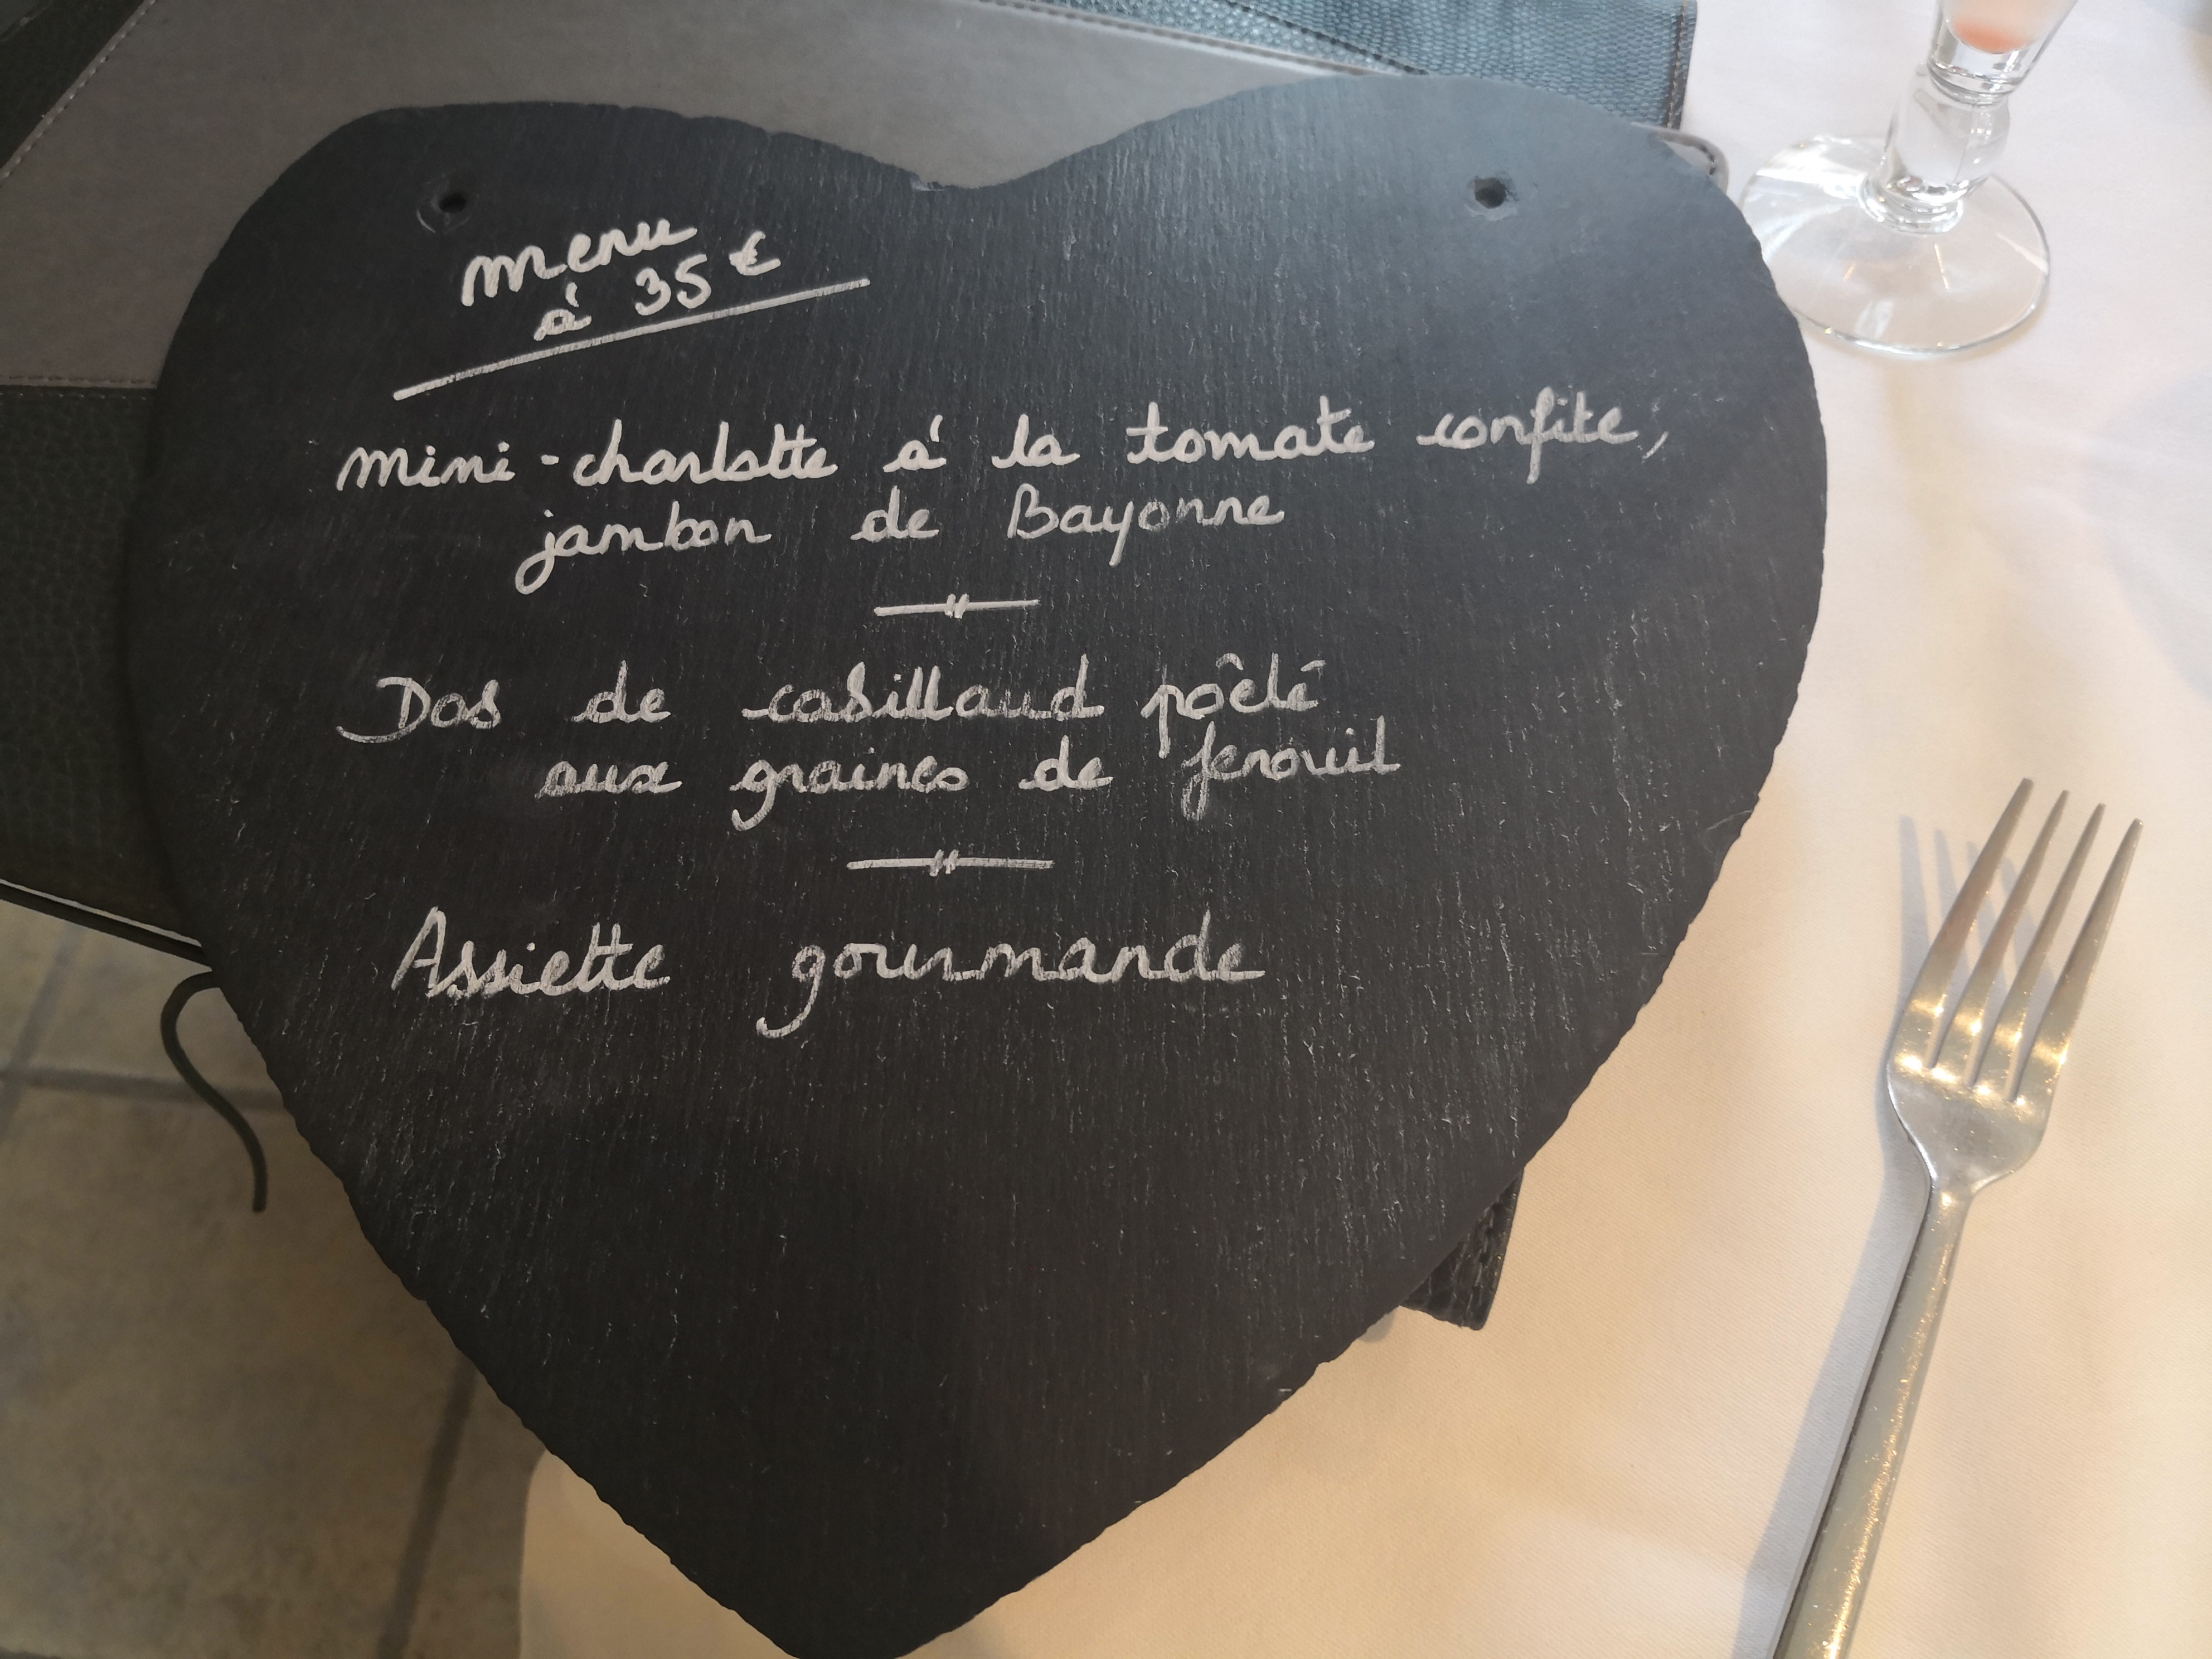 menu
à 35 €
mini-charlotte à la tomate confite,
jambon de Bayonne
Dos de cabillaud pôêlé
aux graines de fenouil
Assiette gourmande